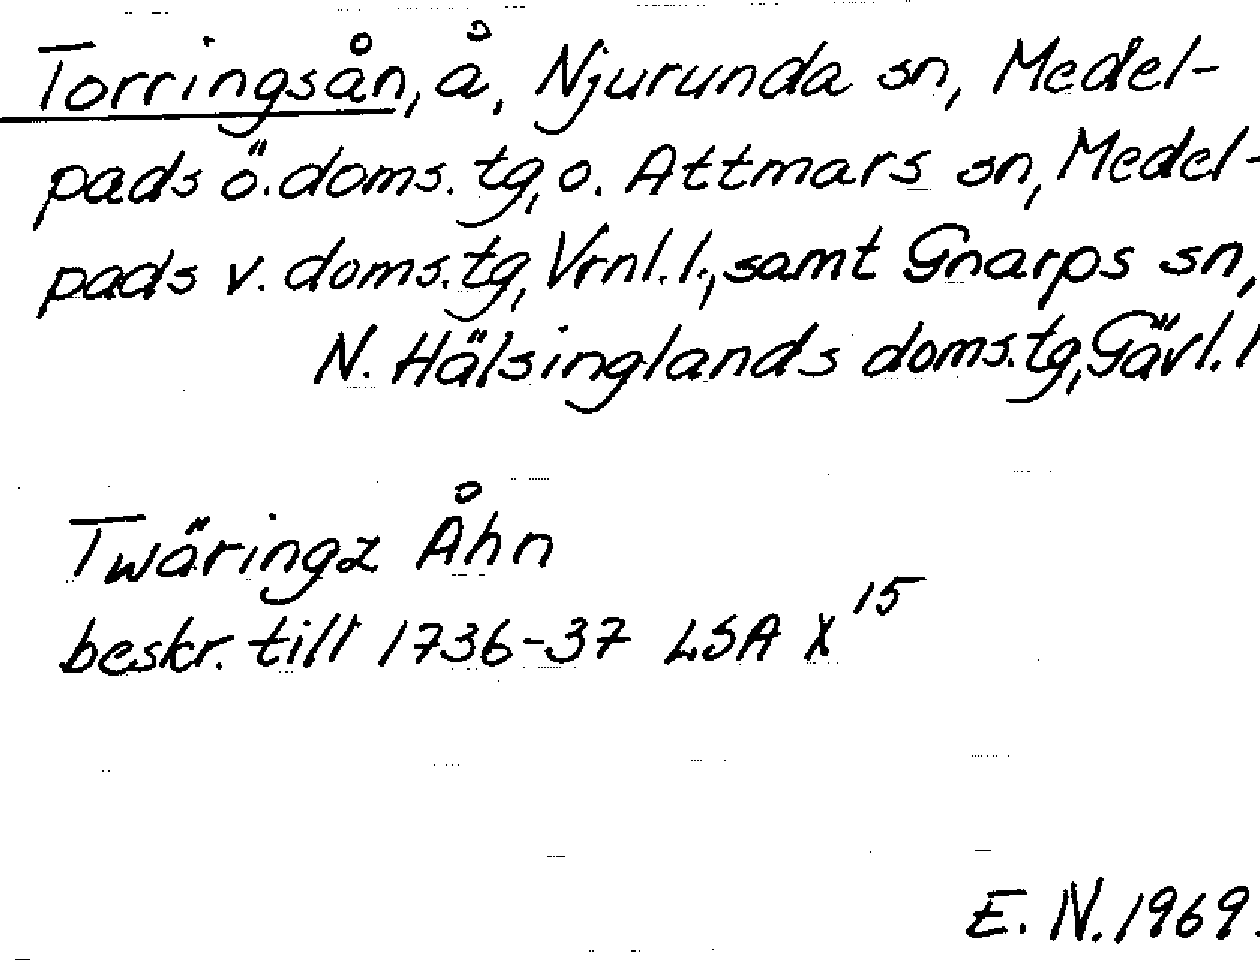 Torringsån, å, Njurunda sn, Medel-
pads ö. doms. tg, o. Attmars sn, Medel-
pads v. doms. tg, Vrnl. l., samt Gnarps sn,
N. Hälsinglands doms. tg, Gävl. l
Twäringz Åhn
beskr. till 1736-37 LSA X 15
E. N. 1969.